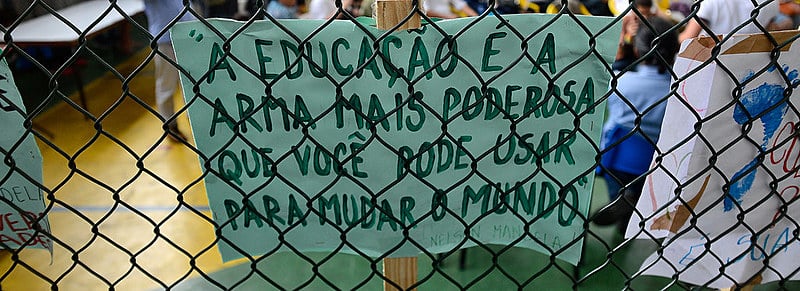 "A EDUCAÇÃO É A
ARMA MAIS PODEROSA
QUE VOCÊ PODE USAR
PARA MUDAR O MUNDO"
NELSON MANDELA
DELA
E SUA